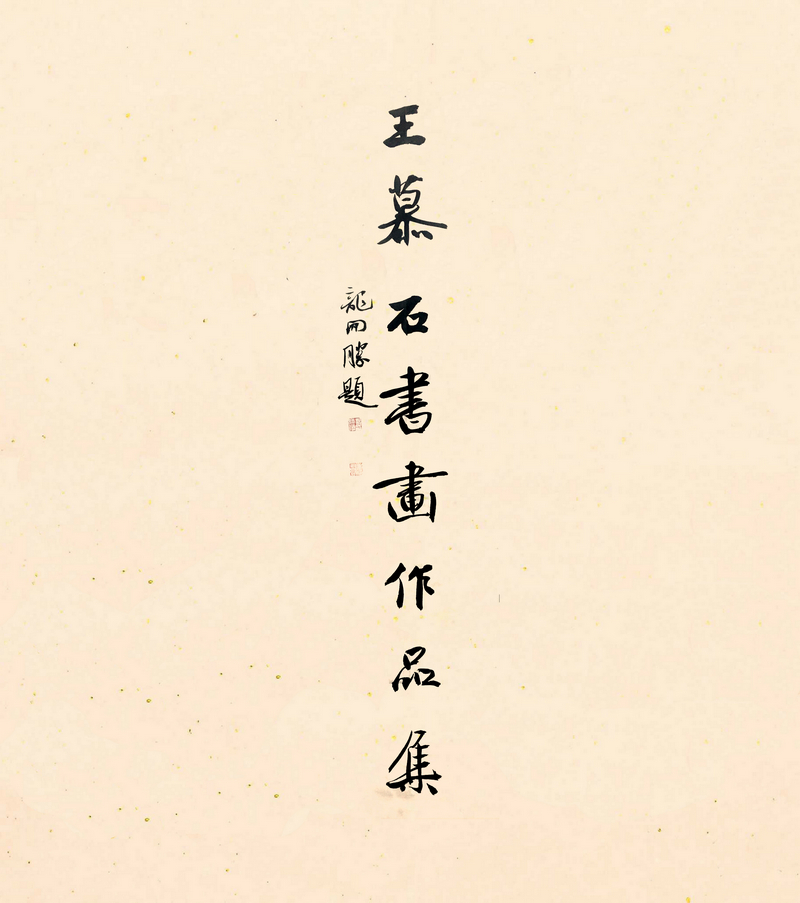 王慕石書畫作品集
龍開勝題